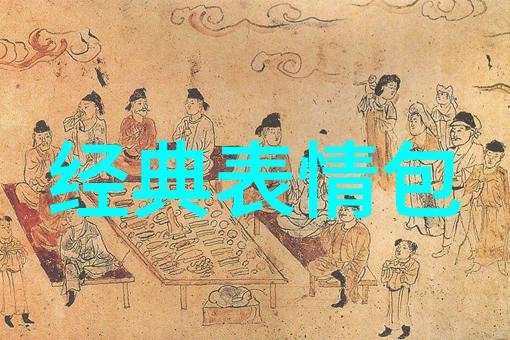 经典表情包